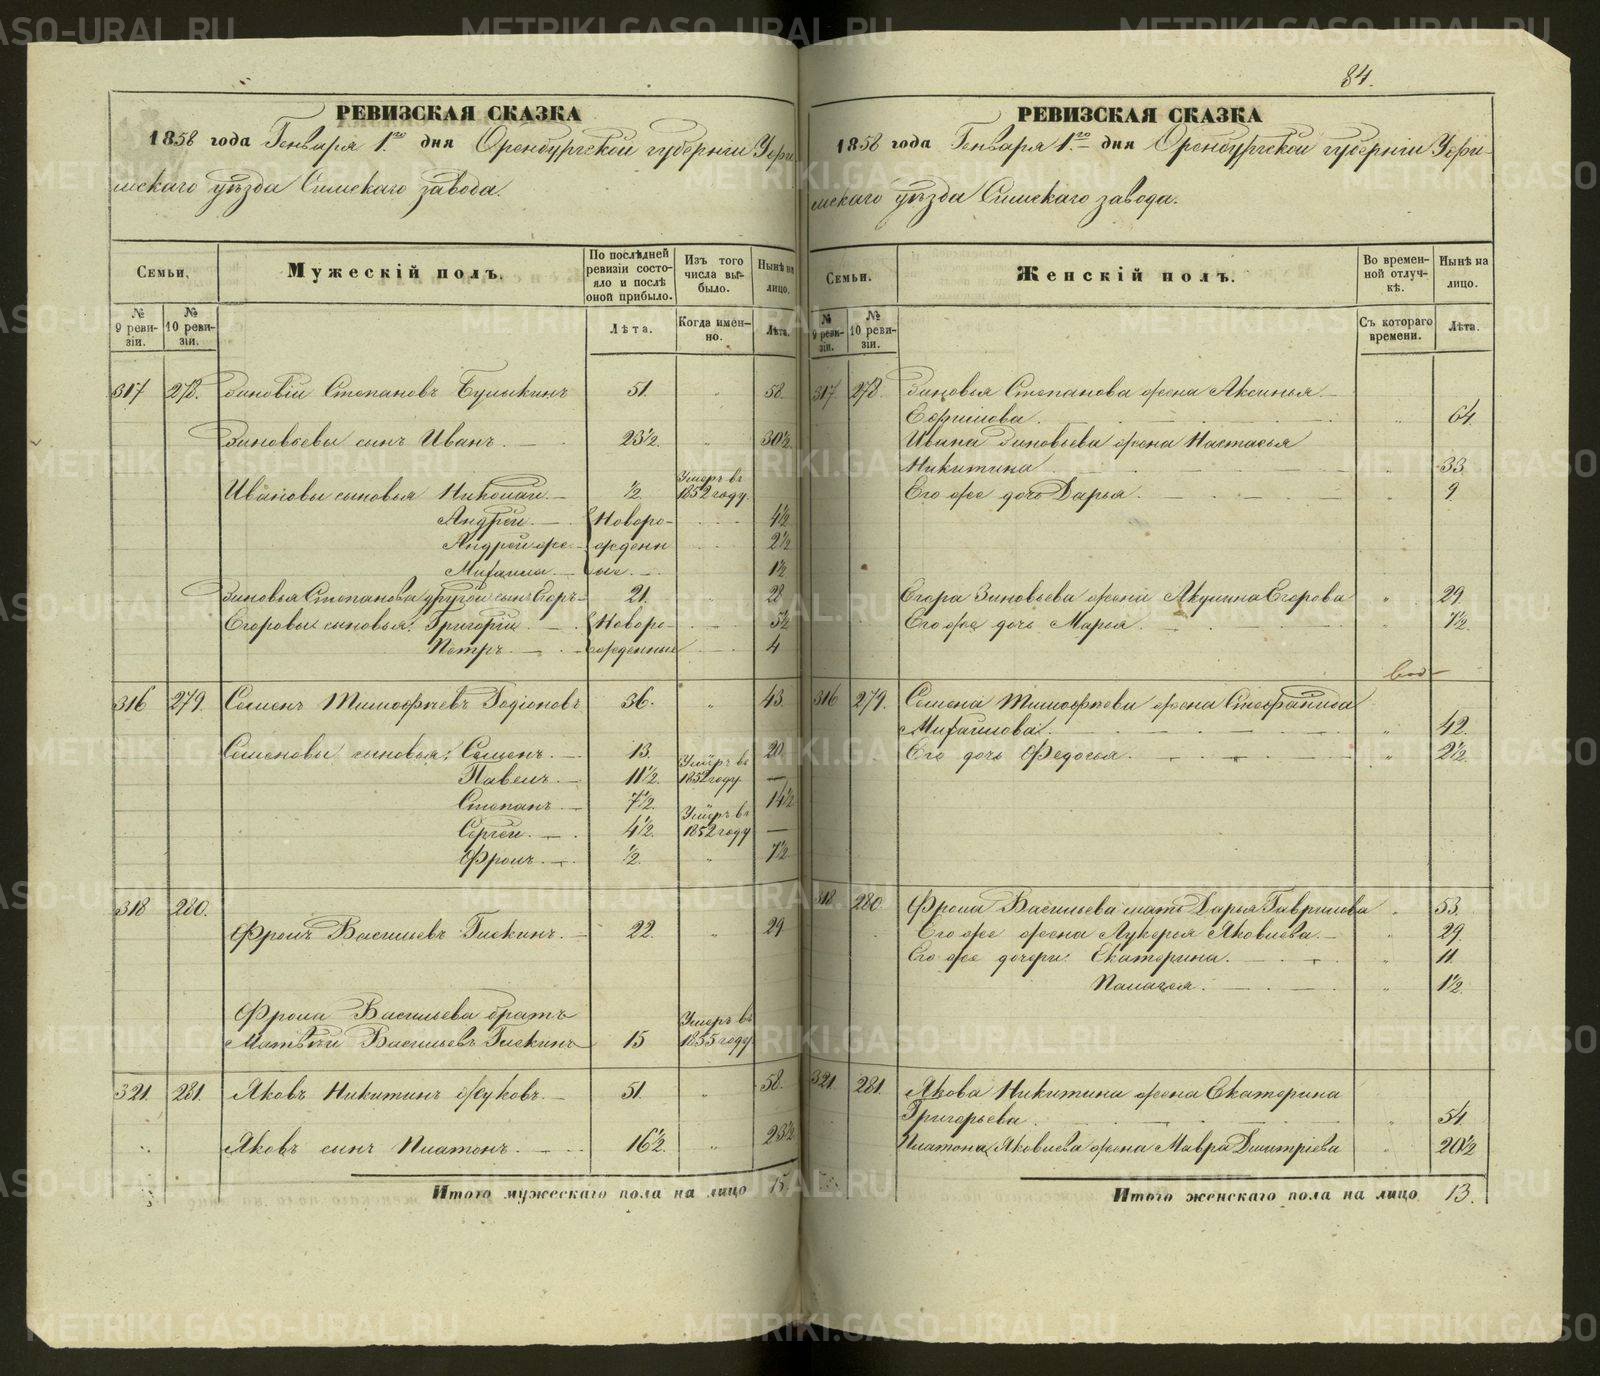 84.
РЕВИЗСКАЯ СКАЗКА
1858 года Генваря 1го дня Оренбургской губернiи Уфи
мскаго уѣзда Симскаго завода.
Семьи.
Мужескiй полъ.
По послѣдней ревизiи состояло и послѣ оной прибыло.
Изъ того числа выбыло.
Нынѣ на лицо.
№ 9 ревизiи.
№ 10 ревизiи.
Лѣта.
Когда именно.
Лѣта.
317 278. Зиновiй Степановъ 51. „ 58.
Зиновьевы сынъ Иванъ. 23½ „ 30½
Ивановы сыновья Николай. ½ Умеръ въ 1852 году
Андрей. Новоро- 4½
Андрей же жденн 2½
Михаила. ые. 1½
Зиновья Степанова другой сынъ Егоръ 21. „ 28
Егоровы сыновья: Григорiй. Новоро- 5½
Петръ. жденные 4
316 279. Семенъ Тимофѣевъ Родiоновъ 36. „ 43.
Семеновы сыновья: Семенъ. 13. 20.
Павелъ. 11½. Умеръ въ 1852 году —
Степанъ. 7½. 14½
Сергей. 4½. Умеръ въ 1852 году —
Фролъ. ½. „ 7½
318 280.
Фролъ Васильевъ Гискинъ. 22. „ 29
Фрола Васильева братъ
Матвѣй Васильевъ Гискинъ 15 Умеръ въ 1855 году
321. 281. Яковъ Никитинъ Жуковъ. 51. „ 58.
Яковъ сынъ Платонъ. 16½. „ 23½
Итого мужескаго пола на лицо 15
РЕВИЗСКАЯ СКАЗКА
1858 года Генваря 1го дня Оренбургской губернiи Уфи-
мскаго уѣзда Симскаго завода.
Семьи.
Женскiй полъ.
Во временной отлучкѣ.
Нынѣ на лицо.
№ 9 ревизiи.
№ 10 ревизiи.
Съ котораго времени.
Лѣта.
317. 278. Зиновья Степанова жена Аксинья
Ефимова. „ 64.
Ивана Зиновьева жена Настасья
Никитина „ 33.
Его же дочь Дарья. „ 9.
Егора Зиновьева жена Акулина Егорова „ 29.
Его же дочь Марья. „ 1½.
316 279. Семена Тимофѣева жена Стефанида
Михаилова. „ 42.
Его дочь Федосья. „ 2½.
318 280 Фрола Васильева мать Дарья Гаврилова „ 53.
Его же жена Лукерья Яковлева. „ 29.
Его же дочери: Екатерина. „ 11.
Палагея. „ 1½.
321. 281. Якова Никитина жена Екатерина
Григорьева. „ 54.
Платона Яковлева жена Мавра Димитрiева „ 20½
Итого женскаго пола на лицо 13.
METRIKI.GASO-URAL.RU